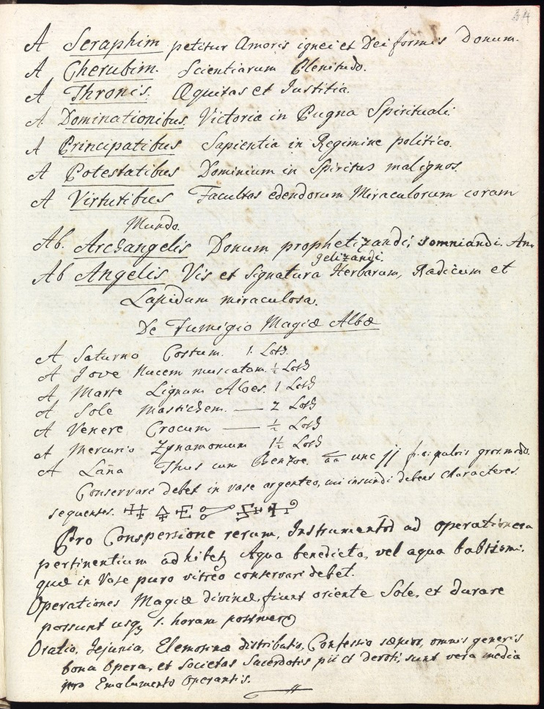 34
A Seraphim petitur Amoris ignei et Dei formis Donum.
A Cherubim. Scientiarum Plenitudo.
A Thronis. Æquitas et Iustitia
A Dominationibus Victoria in Pugna Spirituali
A Principatibus Sapientia in Regimine politico.
A Potestatibus Dominium in Spiritus malignos.
A Virtutibus Facultas edendorum Miraculorum coram
Mundo.
Ab. Archangelis Donum prophetizandi, somniandi. An-
gelizandi.
Ab Angelis Vis et Signatura Herbarum, Radicum et
Lapidum miraculosa.
De Fumigio Magiæ Albæ
A Saturno Costum. 1. Loth.
A Jove Nucem muscatam ½ Loth
A Marte Lignum Aloes 1 Loth
A Sole Mastichem. — 2 Loth
A Venere Crocum — ½ Loth
A Mercurio Zynamomum 1½ Loth
A Luna Thus cum Benzoe. aa unc jj pulvis grosmodo.
Conservare debet in vase argenteo, cui insundi debens characteres.
sequentes.
Pro Conspersione rerum, Instrumentorum ad operationem
pertinentium adhibetur Aqua benedicta, vel aqua babtismi.
quæ in Vase puro vitreo conservari debet.
Operationes Magiæ divinæ fiunt oriente Sole, et durare
possunt usq 1. horam
Oratio, Jejunia, Elemosinæ distributio, Confessio omnis generis
bona Opera, et Societas Sacerdotis pii et devoti, sunt vera media
pro Emolumento Operantis.